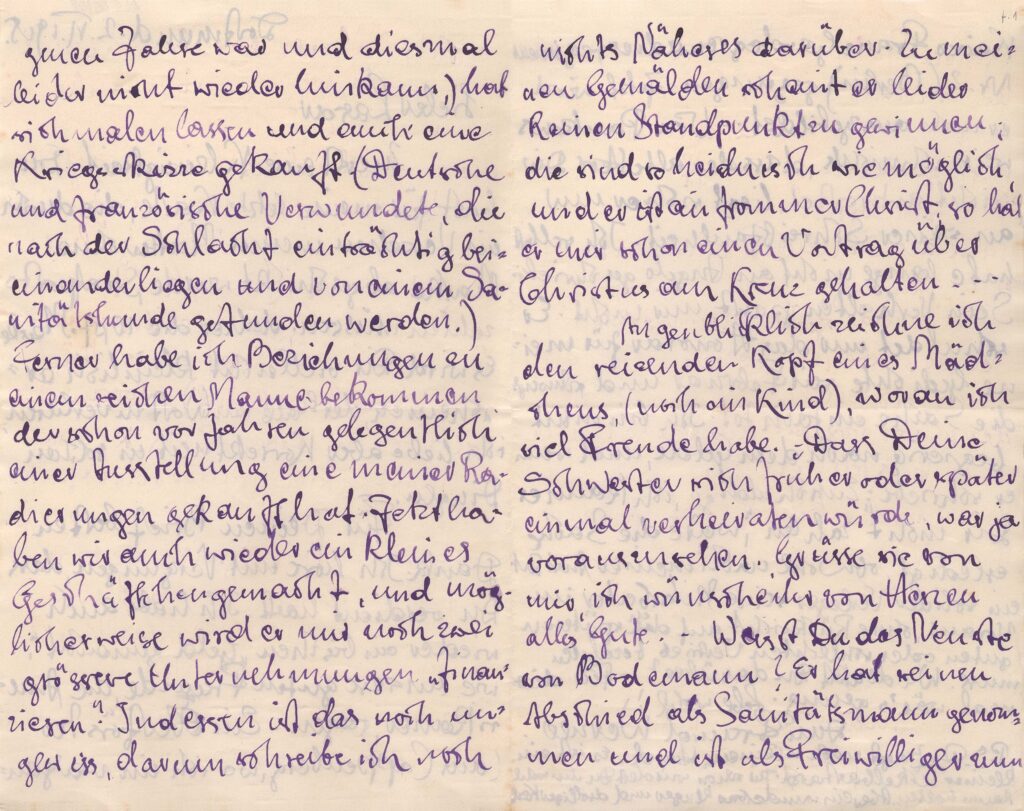 genen Jahre war und diesmal
leider nicht wieder hinkam,) hat
sich malen lassen und auch eine
Kriegsskizze gekauft (Deutsche
und französische Verwundete, die
nach der Schlacht einträchtig bei-
einanderliegen und von einem Sa-
nitätshunde gefunden werden.)
Ferner habe ich Beziehungen zu
einem reichen Manne bekommen
der schon vor Jahren gelegentlich
einer Ausstellung eine meiner Ra-
dierungen gekauft hat. Jetzt ha-
ben wir auch wieder ein kleines
Geschäftchen gemacht, und mög-
licherweise wird er mir noch zwei
grössere Unternehmungen „finan-
zieren". Indessen ist das noch un-
gewiss, darum schreibe ich noch
nichts Näheres darüber. Zu mei-
nen Gemälden scheint er leider
keinen Standpunkt zu gewinnen;
die sind so heidnisch wie möglich
und er ist ein frommer Christ, so hat
er mir schon einen Vortrag über
Christus am Kreuz gehalten - -
Augenblicklich zeichne ich
den reizenden Kopf eines Mäd-
chens, (noch ein Kind), woran ich
viel Freude habe. - Dass Deine
Schwester sich früher oder später
einmal verheiraten würde, war ja
vorauszusehen. Grüsse sie von
mir, ich wünsche ihr von Herzen
alles Gute. - Weisst Du das Neuste
von Bodemann? Er hat seinen
Abschied als Sanitätsmann genom-
men und ist als Freiwilliger zum